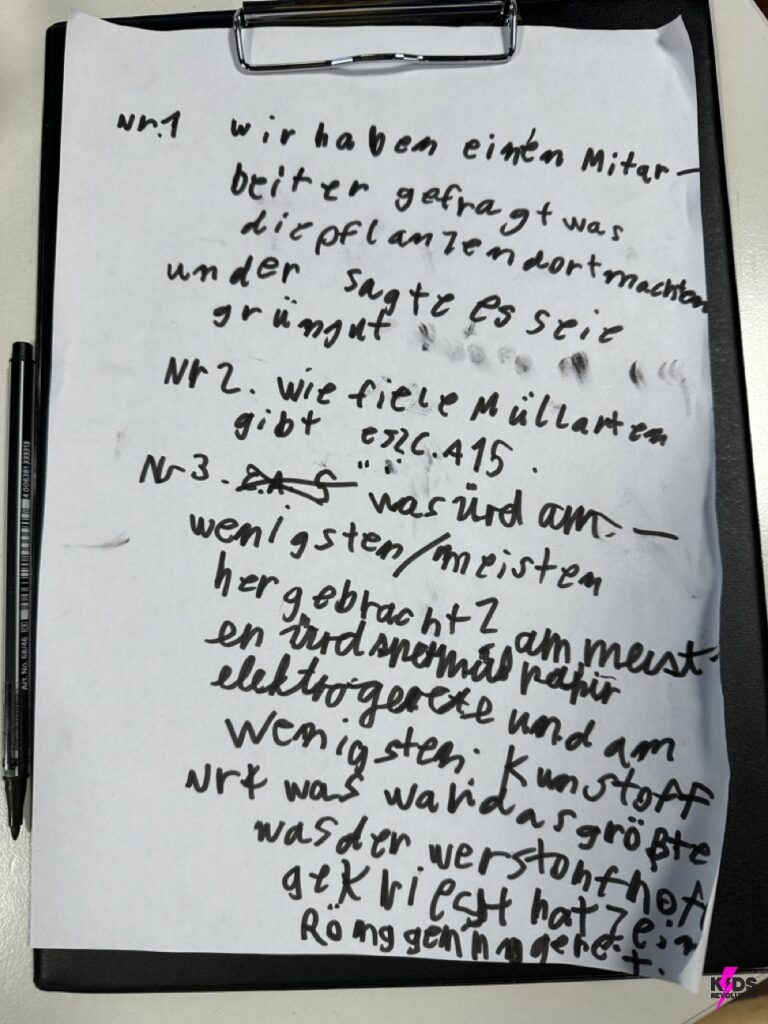 Nr.1 wir haben einen Mitar-
beiter gefragt was
die pflanzen dort machten
und er sagte es seie
grüngut
Nr 2. wie fiele Müllarten
gibt es? C.A 15.
Nr 3. was ürd am
wenigsten/meisten
her gebracht? am meist
en ürd spermül papir
elektrogerete und am
wenigsten. Kunstoff
Nr4 was war das größte
was der werstonfhof
gekriecht hat? ein
KIDS
REVOLUTION